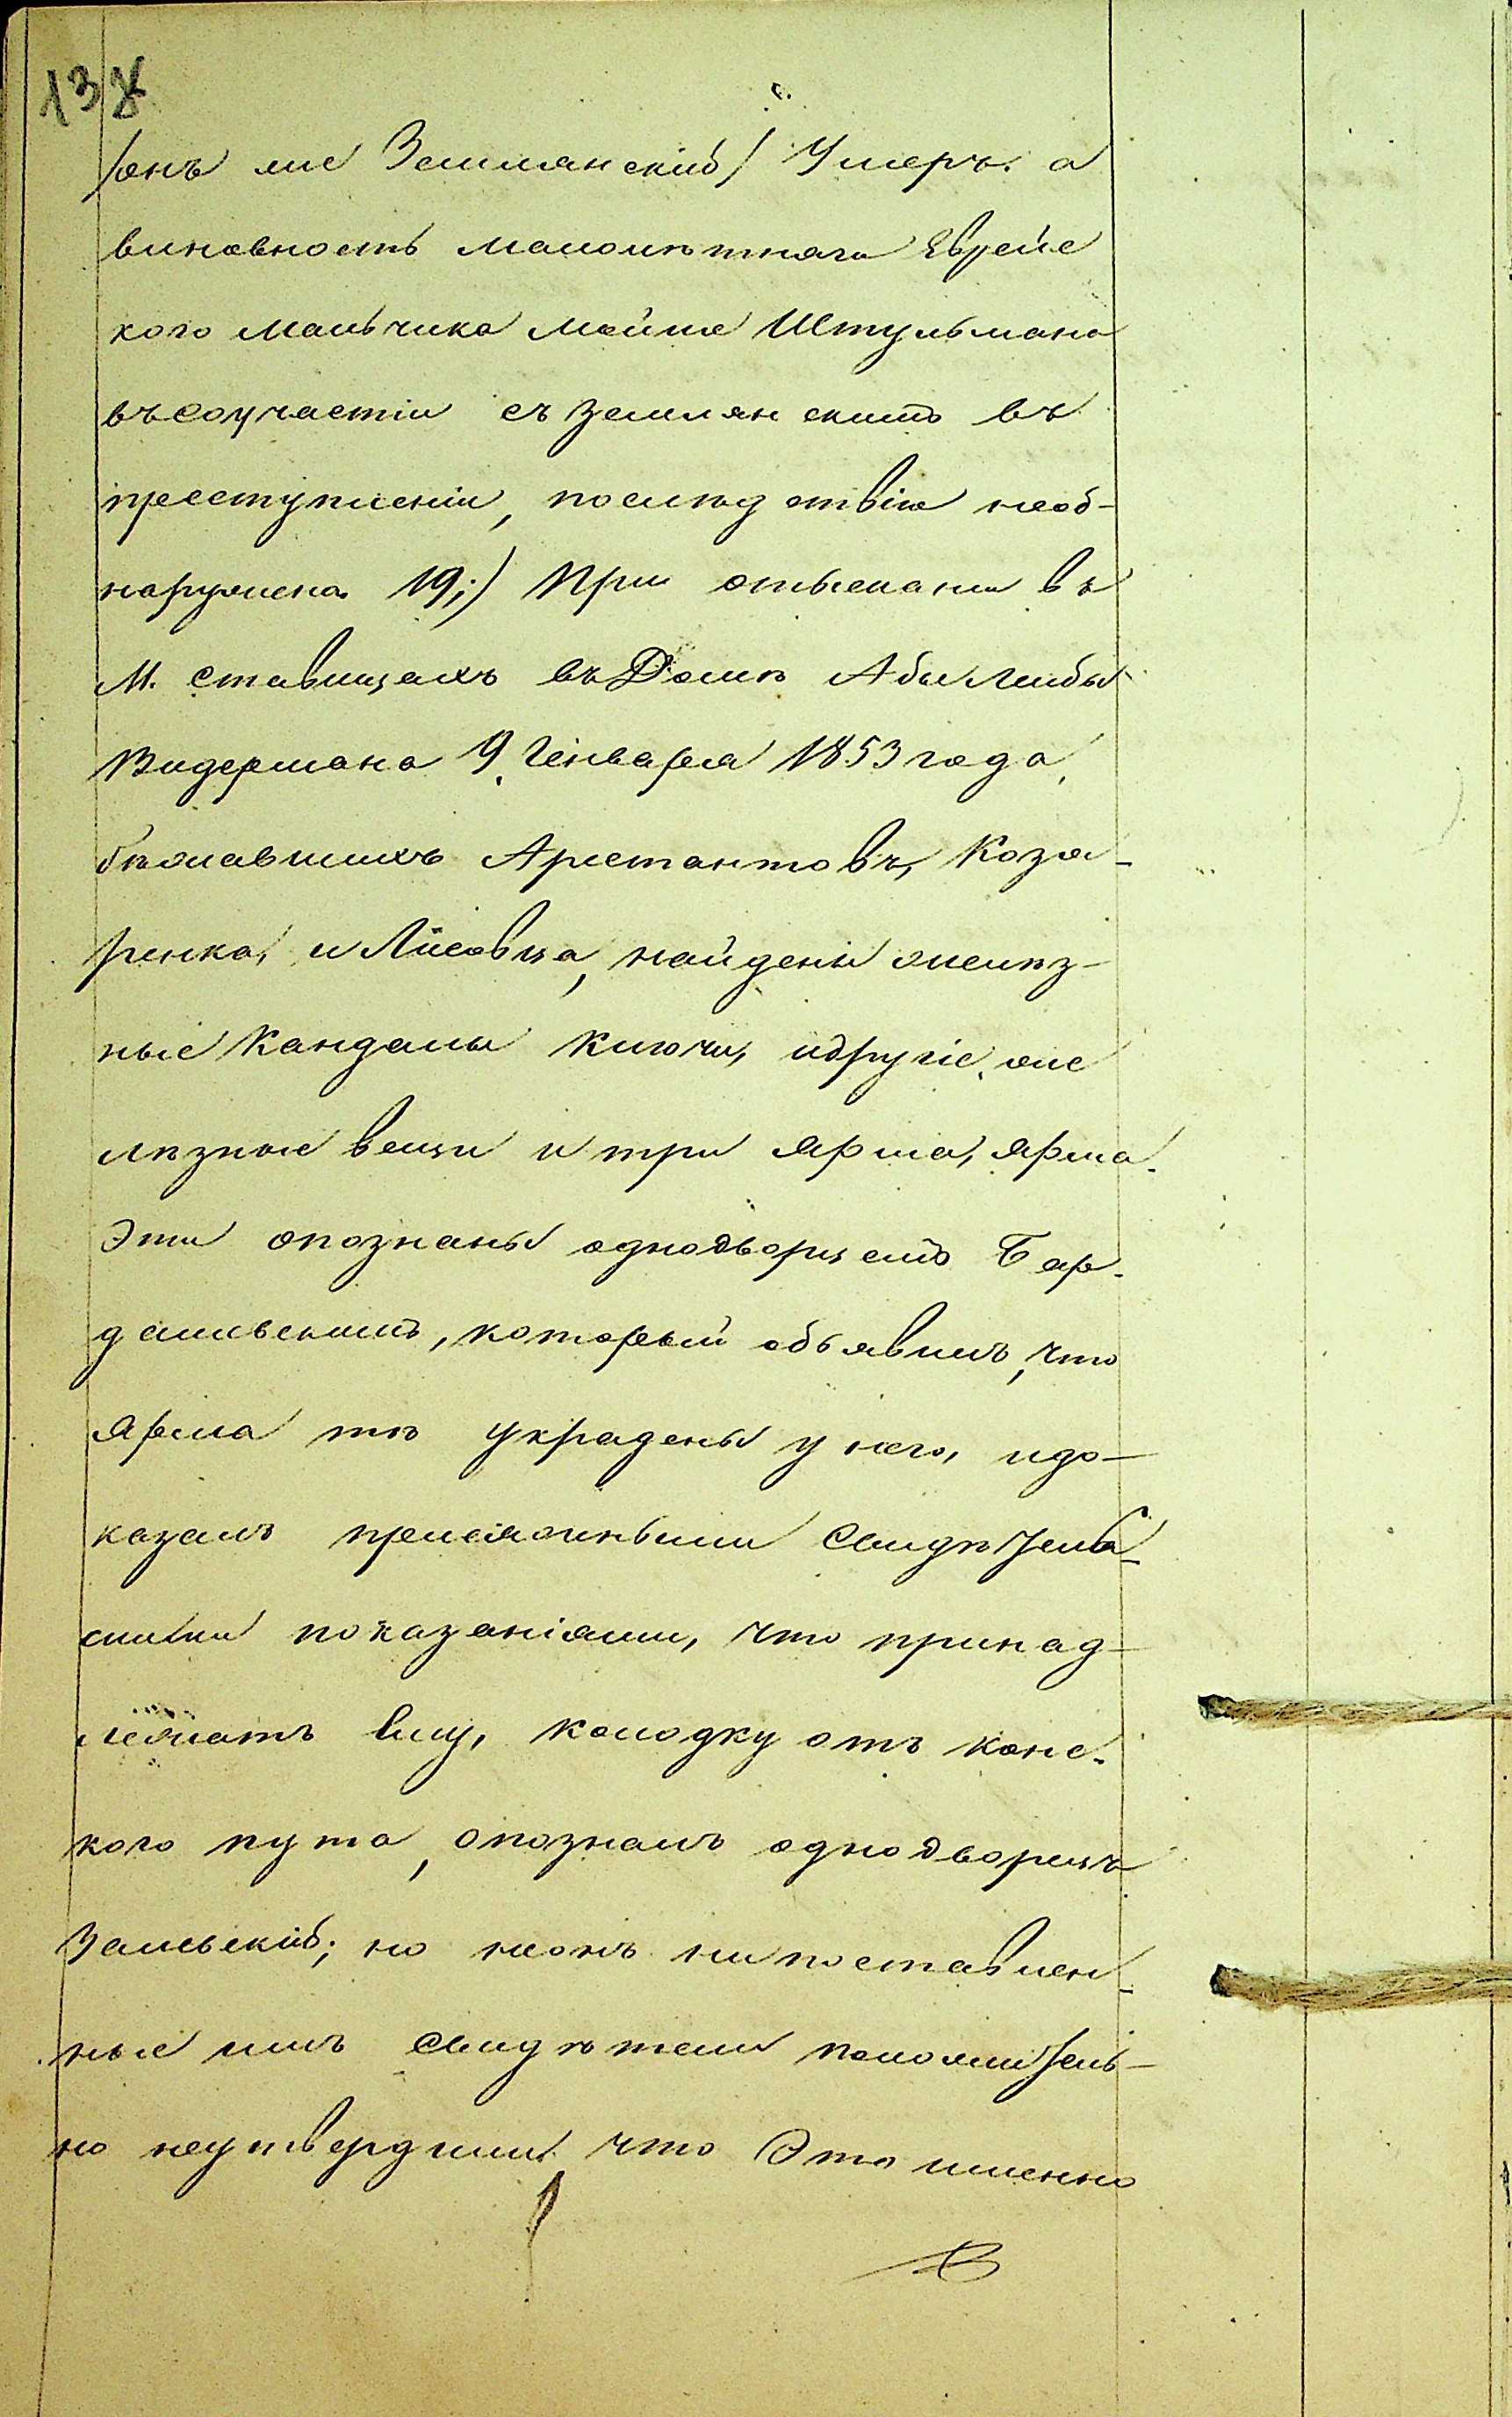 138
/онъ же Землянскій/ Умеръ. а
виновность малолѣтняго Еврейс
кого мальчика Мошка Штульмана
въ соучастіи съ Землянскимъ въ
преступленіи, послѣдствіи необ-
наружена. 19;) При отысканіи въ
М. Ставищахъ въ Домѣ Абы Лейбы
Видермана 9. Генваря 1853 года,
бѣжавшихъ Арестантовъ, Козя-
ренка, и Лисовца, найдены желѣз-
ные Кандалы Ключи, идругіе, же
лѣзные вещи и три Ярма, Ярма
Эти опознаны однодворцемъ Бар-
дашевскимъ, который объявилъ, что
Ярма тѣ украдены у него, идо-
казалъ присяжными Свидѣтель-
скими показаніями, что принад-
лежатъ ему, колодку отъ конс-
кого пута, опозналъ однодворецъ
Залевскій; но неонъ нипоставлен-
ные имъ Свидѣтели положитель-
но неутвердили что Это именно